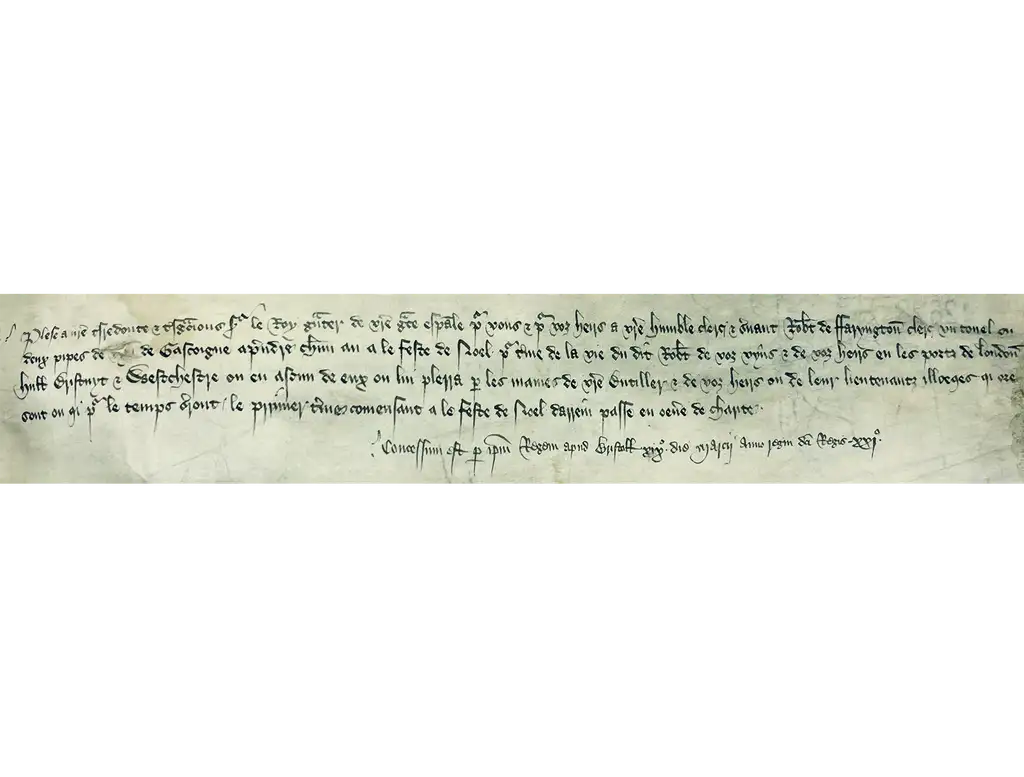 Plese a vr̃e t̃sredoute & t̃sgrãcious sr̃ le Roy gr̃nter de vr̃e grãce esp̃ale pr̃ vous & pr̃ voz heirs a vr̃e humble clerc & s̃vant Rob̃t de ffaryngton̄ clerc un tonel ou
deux pipes de de Gascoigne ap̃ndr̃e ch̃un an a le feste de Noel pr̃ t̃me de la vie du dit̃ Rob̃t de voz vyns & de voz heirs en les portz de london̄
hull Bristuyt & Westchestre ou en ascun de eux ou lui plerra p̱ les mains de vr̃e Butiller & de voz heirs ou de leur lieutenantz illoeqes qi ore
sont ou qi pr̃ le temps s̃ront le primer t̃me comensant a le feste de Noel darrein passe en oeṽe de charite
Concessum est p̱ ip̄m Regem apud Bristoll xix° die Marcii anno regni d̃ci Regis xxi°